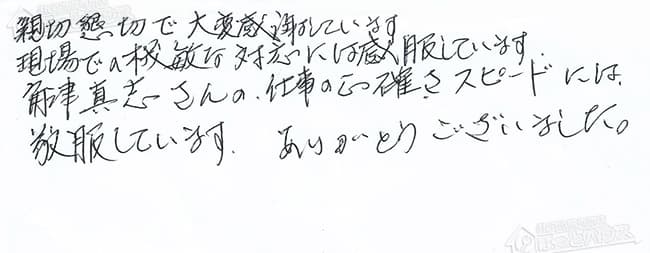 親切懇切で大変感謝しています
現場での機敏な対応には感服しています.
角津真志さんの、仕事の正確さスピードには、
敬服しています. ありがとうございました。